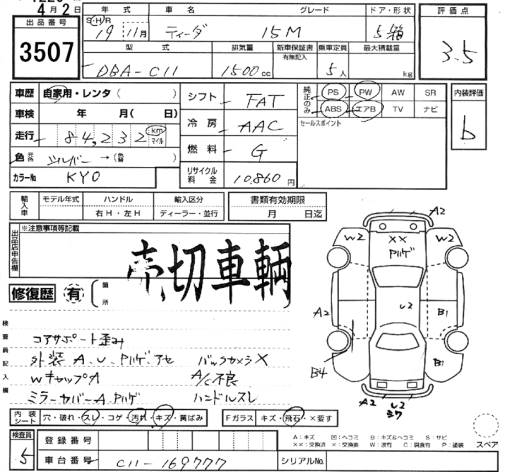 4月2日
出品番号
3507
年式 車名 グレード ドア・形状
S・H/R 19年11月 ティーダ 15M 5箱
評価点
3.5
型式 排気量 新車保証書 乗車定員 最大積載量
有無記入
DBA-C11 1500cc 5人 kg
車歴 自家用・レンタ( )
車検 年 月( )
走行 84,232 km マイル
色 シルバー→( )
カラーNo KY0
シフト FAT
冷房 AAC
燃料 G
リサイクル料金 10,860円
純正のみ PS PW AW SR
ABS エアB TV ナビ
セールスポイント
内装評価
b
輸入車 モデル年式 ハンドル 輸入区分 書類有効期限
右H・左H ディーラー・並行 月 日迄
出品店申告欄
※注意事項等記載
売切車輌
修復歴 有 箇所
検査員記入欄
コアサポート歪み
外装A、U、PハゲアセバックカメラX
WキャップA A/C不良
ミラーカバーA、Pハゲ ハンドルスレ
A2
W2 XX W2
Pハゲ
A2 U2 B1
B4 B1
A2 U2
内装シート 穴・破れ・スレ・コゲ・汚れ・キズ・黄ばみ
Fガラス キズ・飛石・×要す
検査員 5
登録番号
車台番号 C11-169777
シリアルNo.
A:キズ U:ヘコミ B:キズ&ヘコミ S:サビ
XX:交換済 X:要交換 W:波有 C:腐食有 P:塗装
スペア